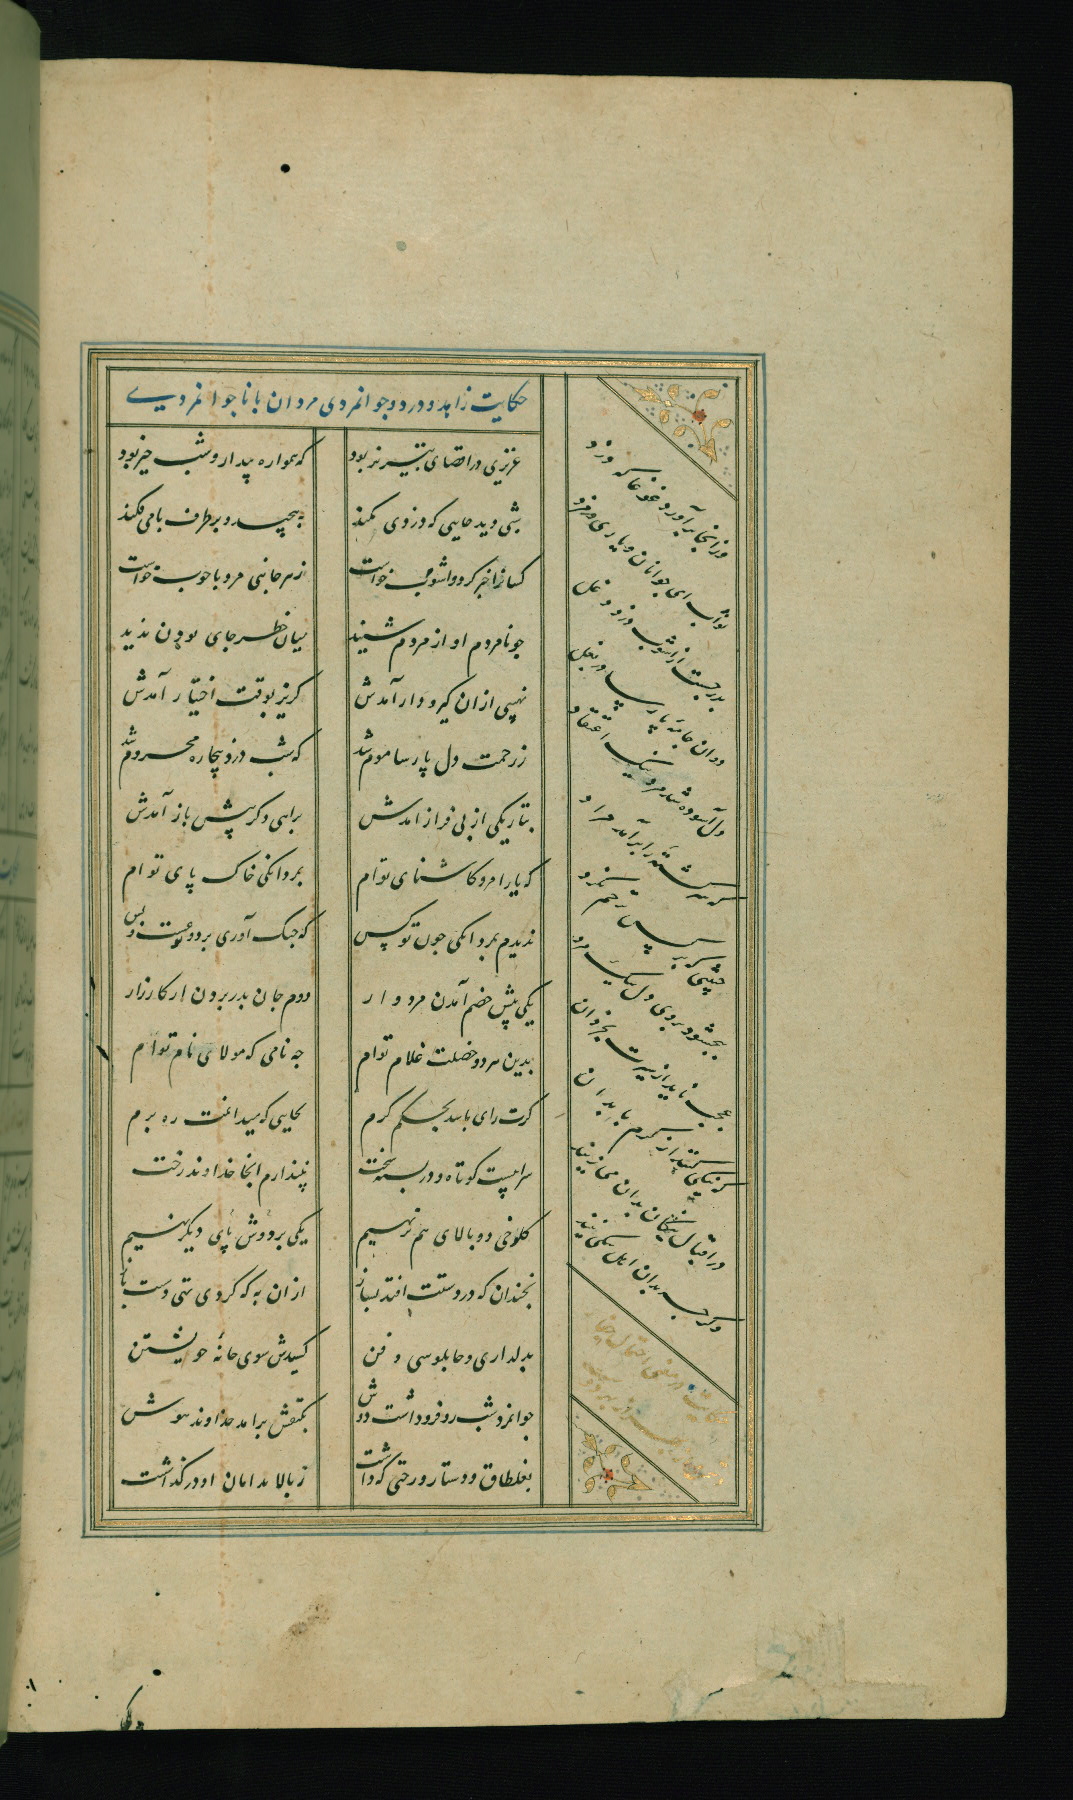 حکایت زاهد و دزد و جوانمردی مردان با ناجوانمردی
عزیزی در اقصای تبریز بود که همواره بیدار و شب خیز بود
شبی دید جایی که دزدی کمند بپیچید و بر طرف بامی فکند
کسانرا خبر کرد و آشوب خواست ز هر جانبی مرد با چوب خواست
چو نامردم آواز مردم شنید میان خطر جای بودن ندید
نهیبی از آن گیر و دار آمدش گریز بوقت اختیار آمدش
ز رحمت دل پارسا موم شد که شب دزد بیچاره محروم شد
بتاریکی از پی فراز آمدش براهی دگر پیش باز آمدش
که یارا مرو کاشنای توام بمردانگی خاک پای توام
ندیدم بمردانگی چون تو کس که جنگ آوری بر دو نوعست و بس
یکی پیش خصم آمدن مردوار دوم جان بدر بردن از کارزار
بدین هر دو خصلت غلام توام چه نامی که مولای نام توام
گرت رای باشد بحکم کرم بجایی که میدانمت ره برم
سراییست کوتاه و در بسته سخت نپندارم آنجا خداوند رخت
کلوخی دو بالای هم بر نهیم یکی بر دوش پای دیگر نهیم
بچندان که در دستت افتد بساز از آن به که گردی تهی دست باز
بدلداری و چاپلوسی و فن کشیدش سوی خانهٔ خویشتن
جوانمرد شب رو فرو داشت دوش بکتفش برآمد خداوند هوش
بغلطاق و دستار و رختی که داشت ز بالا بدامان او در گذاشت
وز آنجا برآورد غوغا که دزد
ثواب ای جوانان و یاری و مزد
بدر جست از آشوب دزد دغل
دوان جامهٔ پارسا در بغل
دل آسوده شد مرد نیک اعتقاد
که سرگشتهٔ را برآمد مراد
خبیثی که بر کس ترحم نکرد
ببخشود بر وی دل نیک مرد
عجب ناید از سیرت بخردان
که نیکی کنند از کرم با بدان
در اقبال نیکان بدان می زیند
وگر چه بدان اهل نیکی نیند